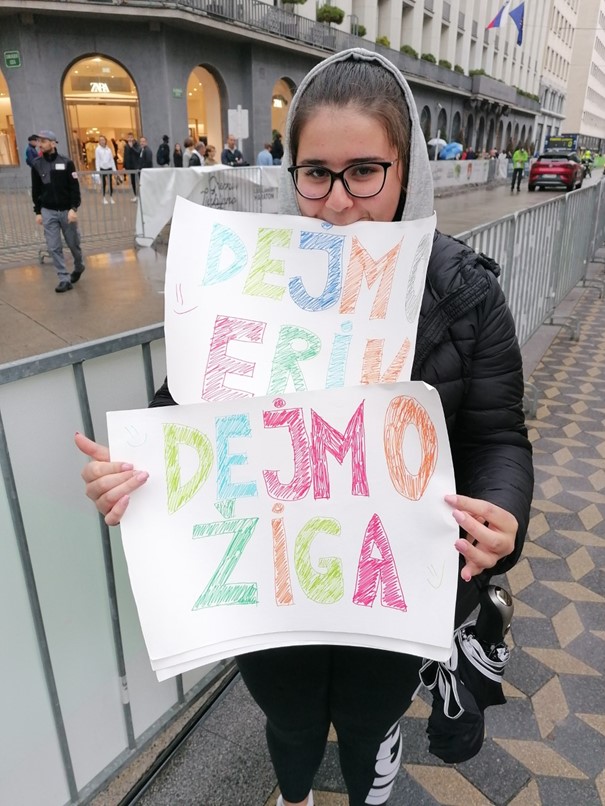 ZARA
DEJMO
ERIK
DEJMO
ŽIGA